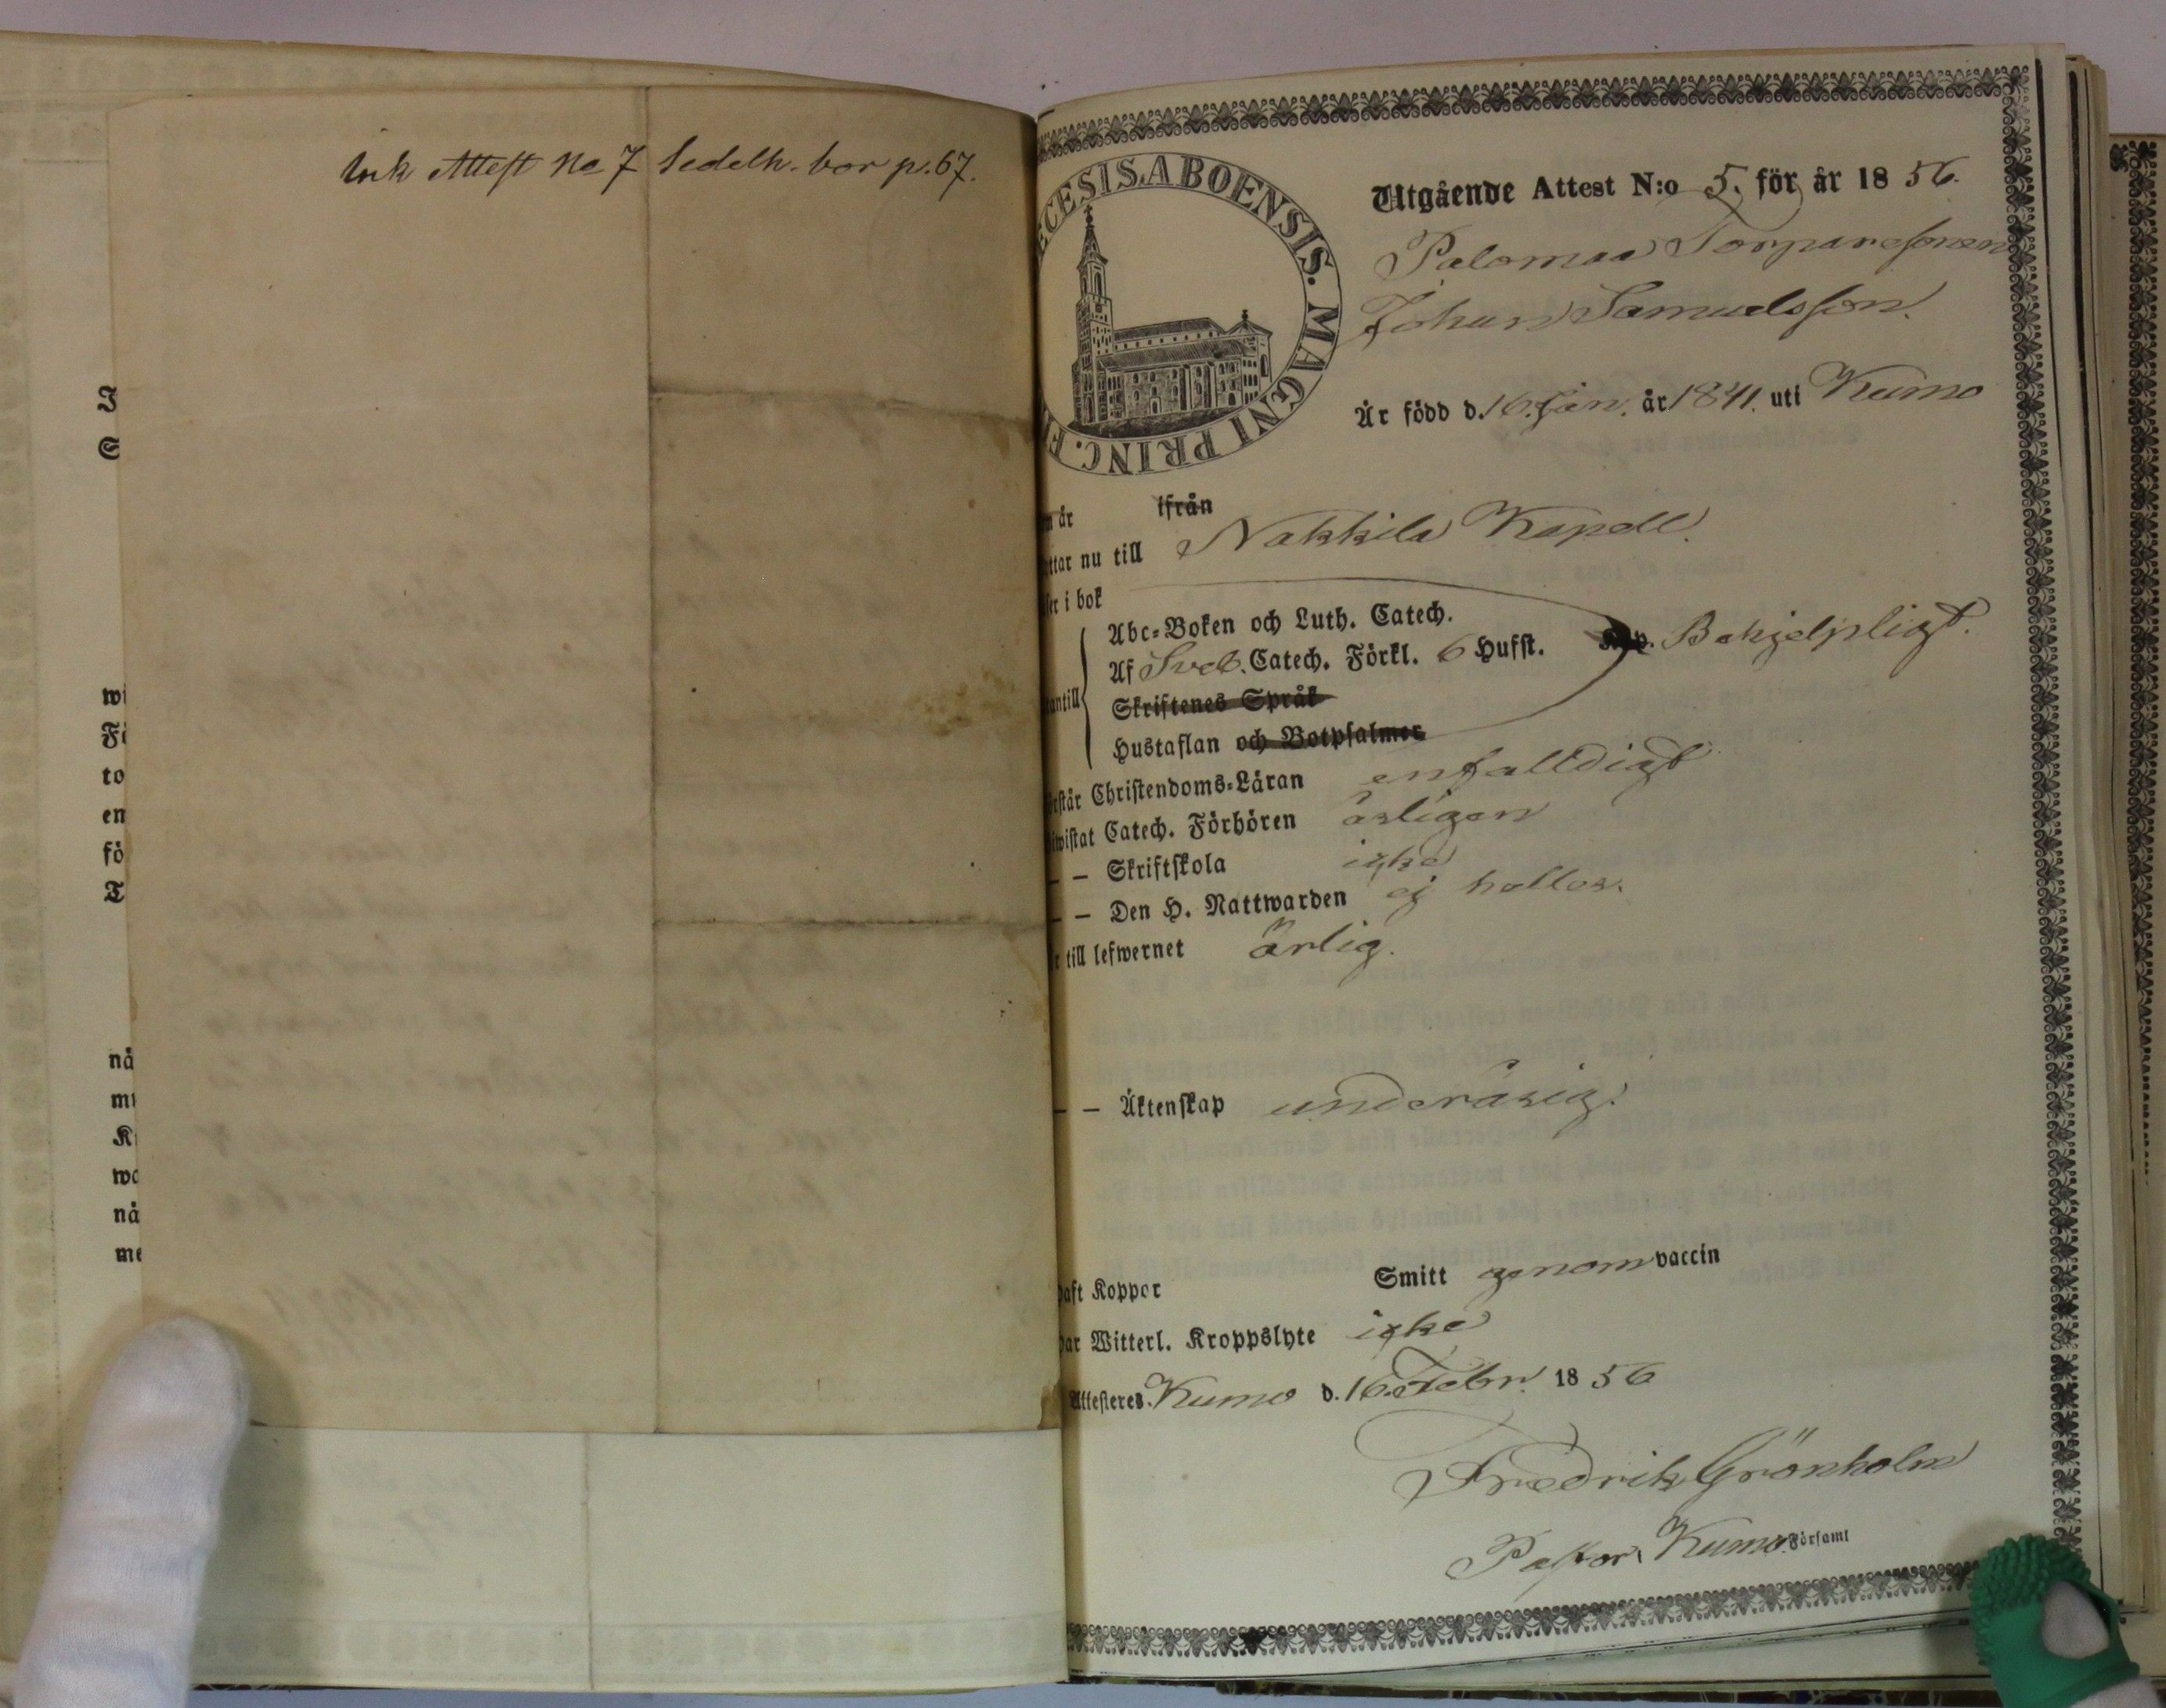 Ink Attest No 7 Sedelh. bor p. 67.
I
S
wi
Fö
to
en
fö
T
nå
mt
K
wa
nå
me
ECESIS. ABOENSIS. MAGNI PRINC. FI
Utgående Attest N:o 5. för år 18 56.
Palomaa Torparesonen
Johan Samuelsson.
Är född d. 16. Jan. år 1841. uti Kumo
n år ifrån
ttar nu till Nakkila Kapell.
ser i bok
Abc-Boken och Luth. Catech.
Af Sveb. Catech. Förkl. 6 Hufst. Behjelpligt.
antill
Skriftenes Språk
Hustaflan och Botpsalmer
rstår Christendoms-Läran enfalldigt
iwistat Catech. Förhören årligen
— — Skriftskola icke
— — Den H. Nattwarden ej heller.
r till lefwernet ärlig.
— — Äktenskap underårig.
haft Koppor Smitt genom vaccin
har Witterl. Kroppslyte icke
Attesteres. Kumo d. 16. Febr. 18 56
Fredrik Grönholm
Pastor, Kumo Församl